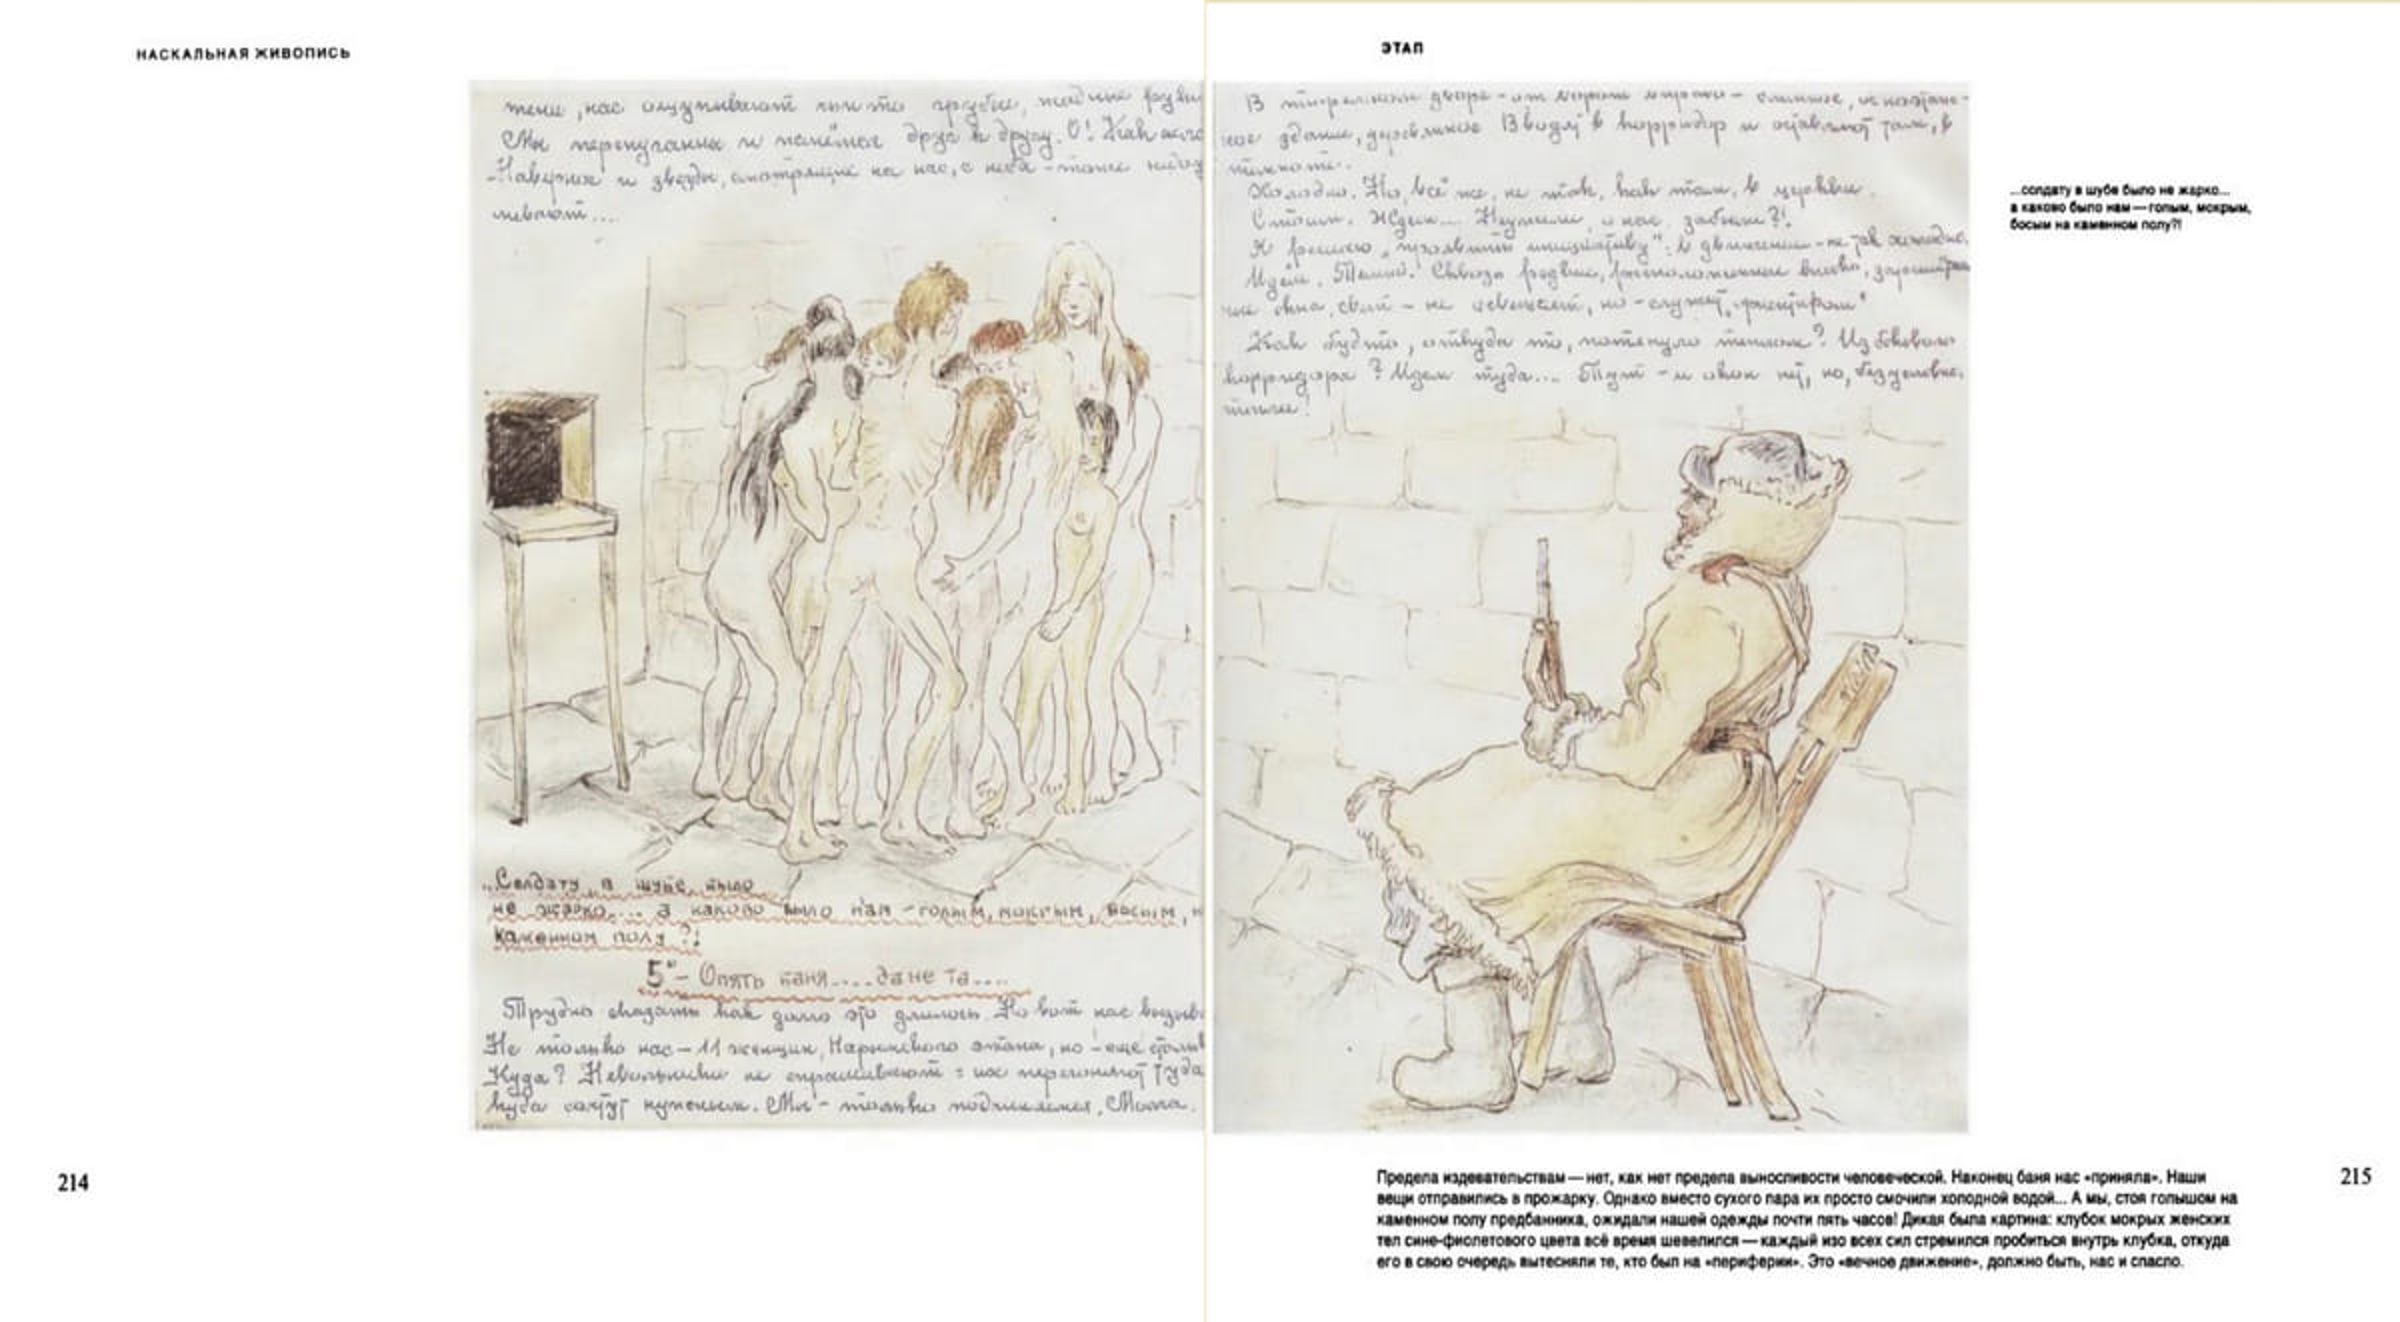 НАСКАЛЬНАЯ ЖИВОПИСЬ
нас ощупывают чьи то грубые, жадные
Мы перепуганы и жмёмся друг к другу. О! Как
Наверное и звёзды, смотрящие на нас, с неба – тоже
„Солдату в шубе было
не жарко.... а каково было нам – голым, мокрым, босым, н
каменном полу?!
5° – Опять баня.... да не та....
Трудно сказать как долго это длилось. Но вот нас
Не только нас – 11 женщин, Нарымского этапа, но – еще
Куда? Невольники не спрашивают: нас перегоняют туда
куда сочтут нужным. Мы – только подчиняемся, Мама.
214
ЭТАП
В тюремном дворе – от ворот – длинное,
ное здание, деревянное. Вводят в корридор и оставляют там, в
темноте.
Холодно. Но, всё же, не так, как там, в церкви.
Стоим. Ждем... Неужели, о нас, забыли?!
Я решаю „проявить инициативу": в движении – не так холодно.
Идём. Темно. Сквозь редкие, расположенные высоко,
ные окна, свет – не освещает, но – служит „ориентиром"
Как будто, откуда то, потянуло теплом? Из бокового
корридора? Идем туда.... Тут – и окон нет, но, безусловно,
теплее!
...солдату в шубе было не жарко...
а каково было нам — голым, мокрым,
босым на каменном полу?!
Предела издевательствам — нет, как нет предела выносливости человеческой. Наконец баня нас «приняла». Наши
вещи отправились в прожарку. Однако вместо сухого пара их просто смочили холодной водой... А мы, стоя голышом на
каменном полу предбанника, ожидали нашей одежды почти пять часов! Дикая была картина: клубок мокрых женских
тел сине-фиолетового цвета всё время шевелился — каждый изо всех сил стремился пробиться внутрь клубка, откуда
его в свою очередь вытесняли те, кто был на «периферии». Это «вечное движение», должно быть, нас и спасло.
215